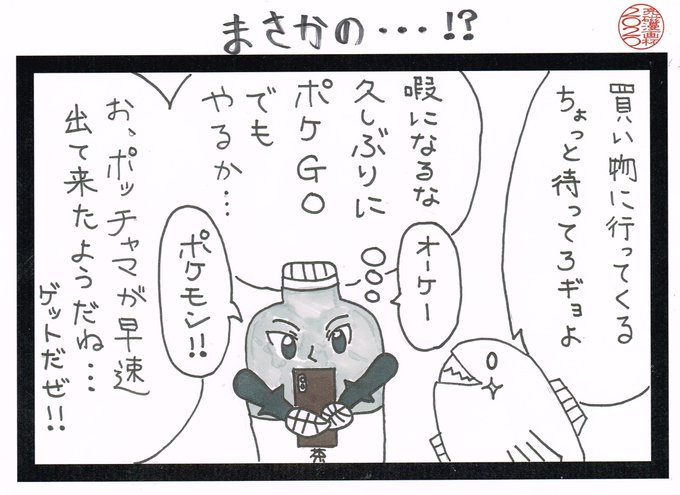 まさかの・・・!?
買い物に行ってくる
ちょっと待ってろギョよ
オーケー
暇になるな
久しぶりに
ポケGO
でも
やるか…
ポケモン!!
お、ポッチャマが早速
出て来たようだね…
ゲットだぜ!!
茶
2020